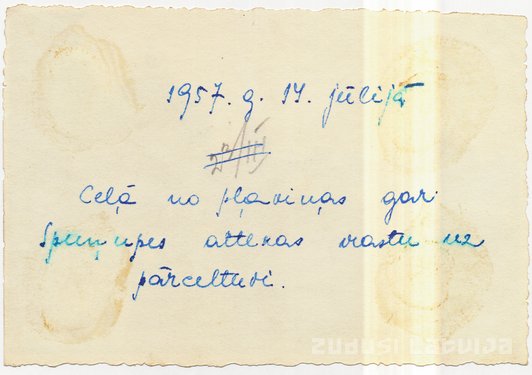 1957. g. 14. jūlijā
Ceļā no pļaviņas gar
Spuņupes attekas krastu uz
pārceltuvi.
zudusī Latvija